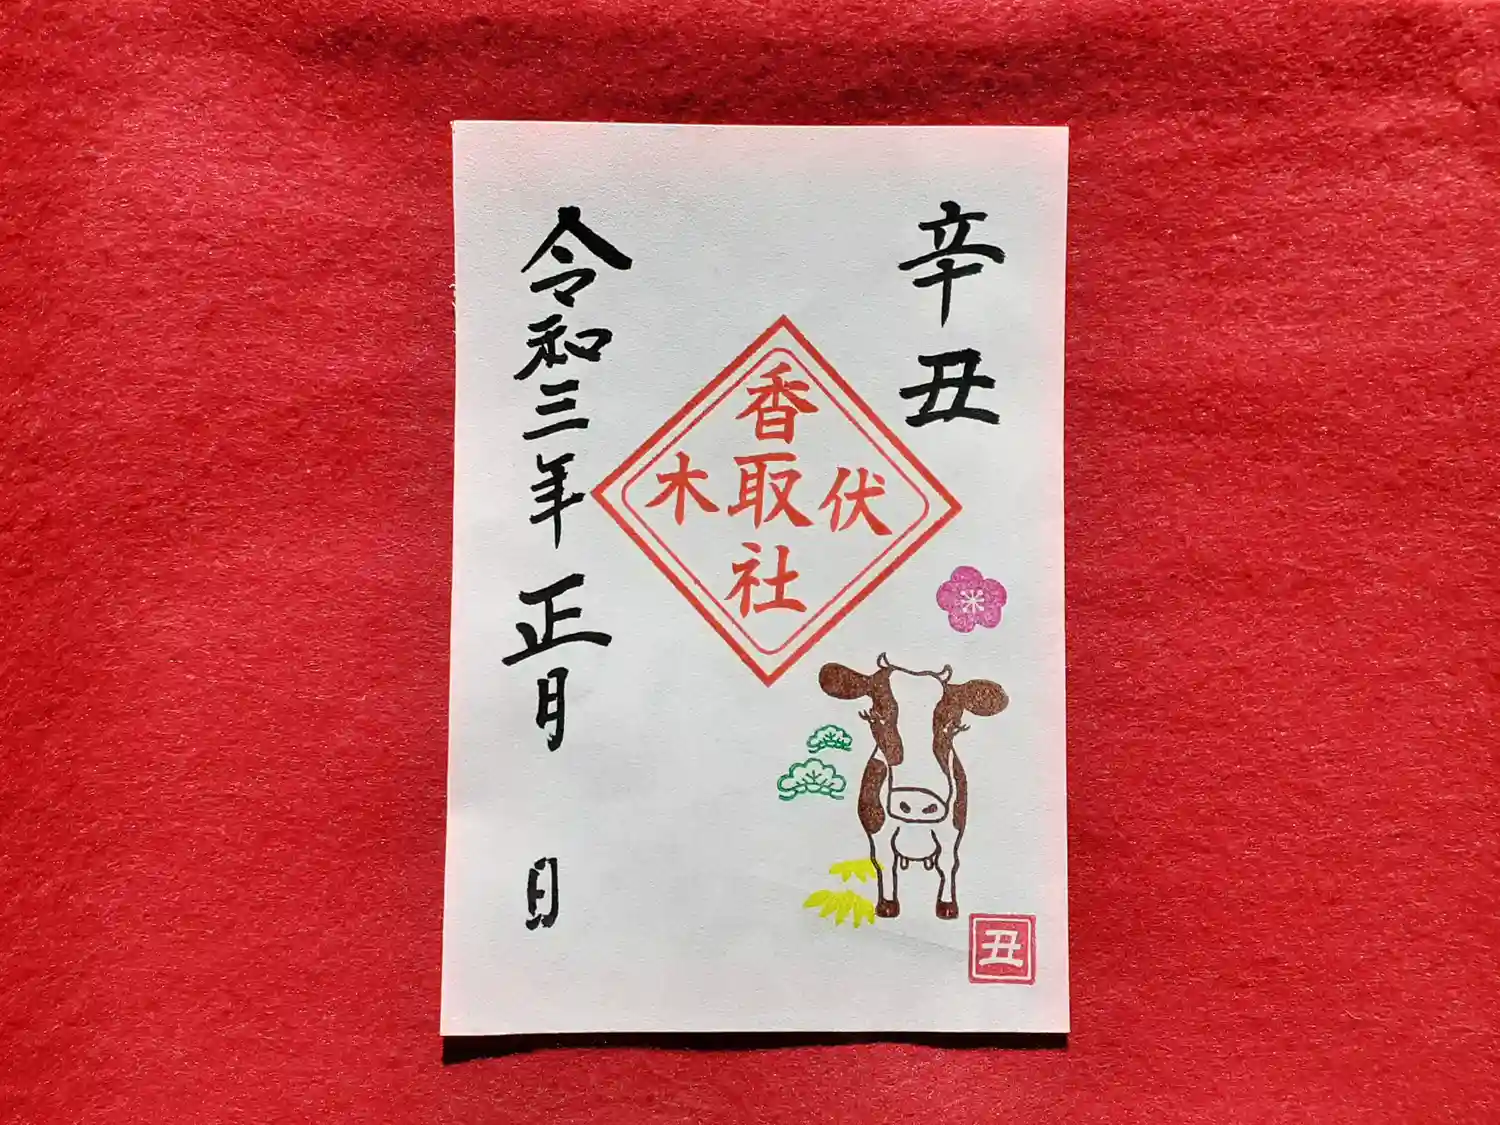 辛丑
伏木
香取社
令和三年正月 日
丑